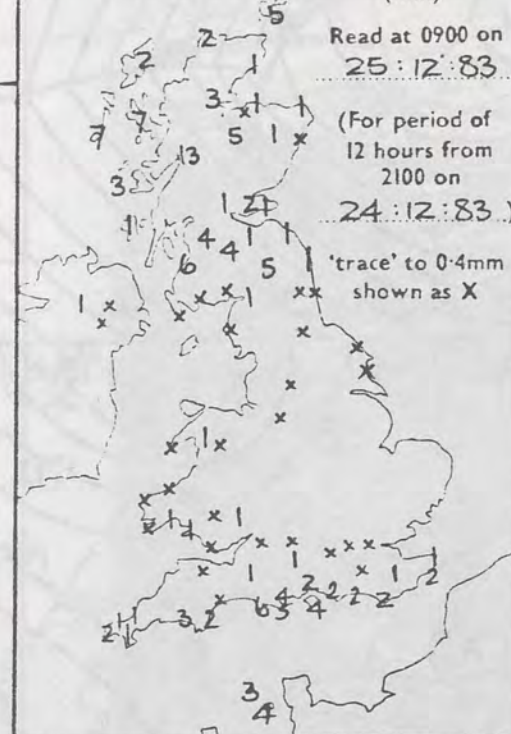 Read at 0900 on
25:12:83
(For period of
12 hours from
2100 on
24:12:83)
'trace' to 0·4mm
shown as X
5
2
2 1
3 1 1
7 7 x
5 1 x
13
3
1 2 1
1 4 4 1 1
6 5 1
x x 1 x x
1 x x
x x x
x
x
x
x
x 1 x
x x
x 1
x x 1
x x x x x x
1
x 1 x 1 1
2
x 6 4 5 2 4 2 2 2
1 1
2 1 3 2
3
4